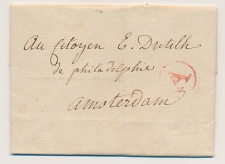 Au Citoyen E. Dutilh
de philadelphie
Amsterdam